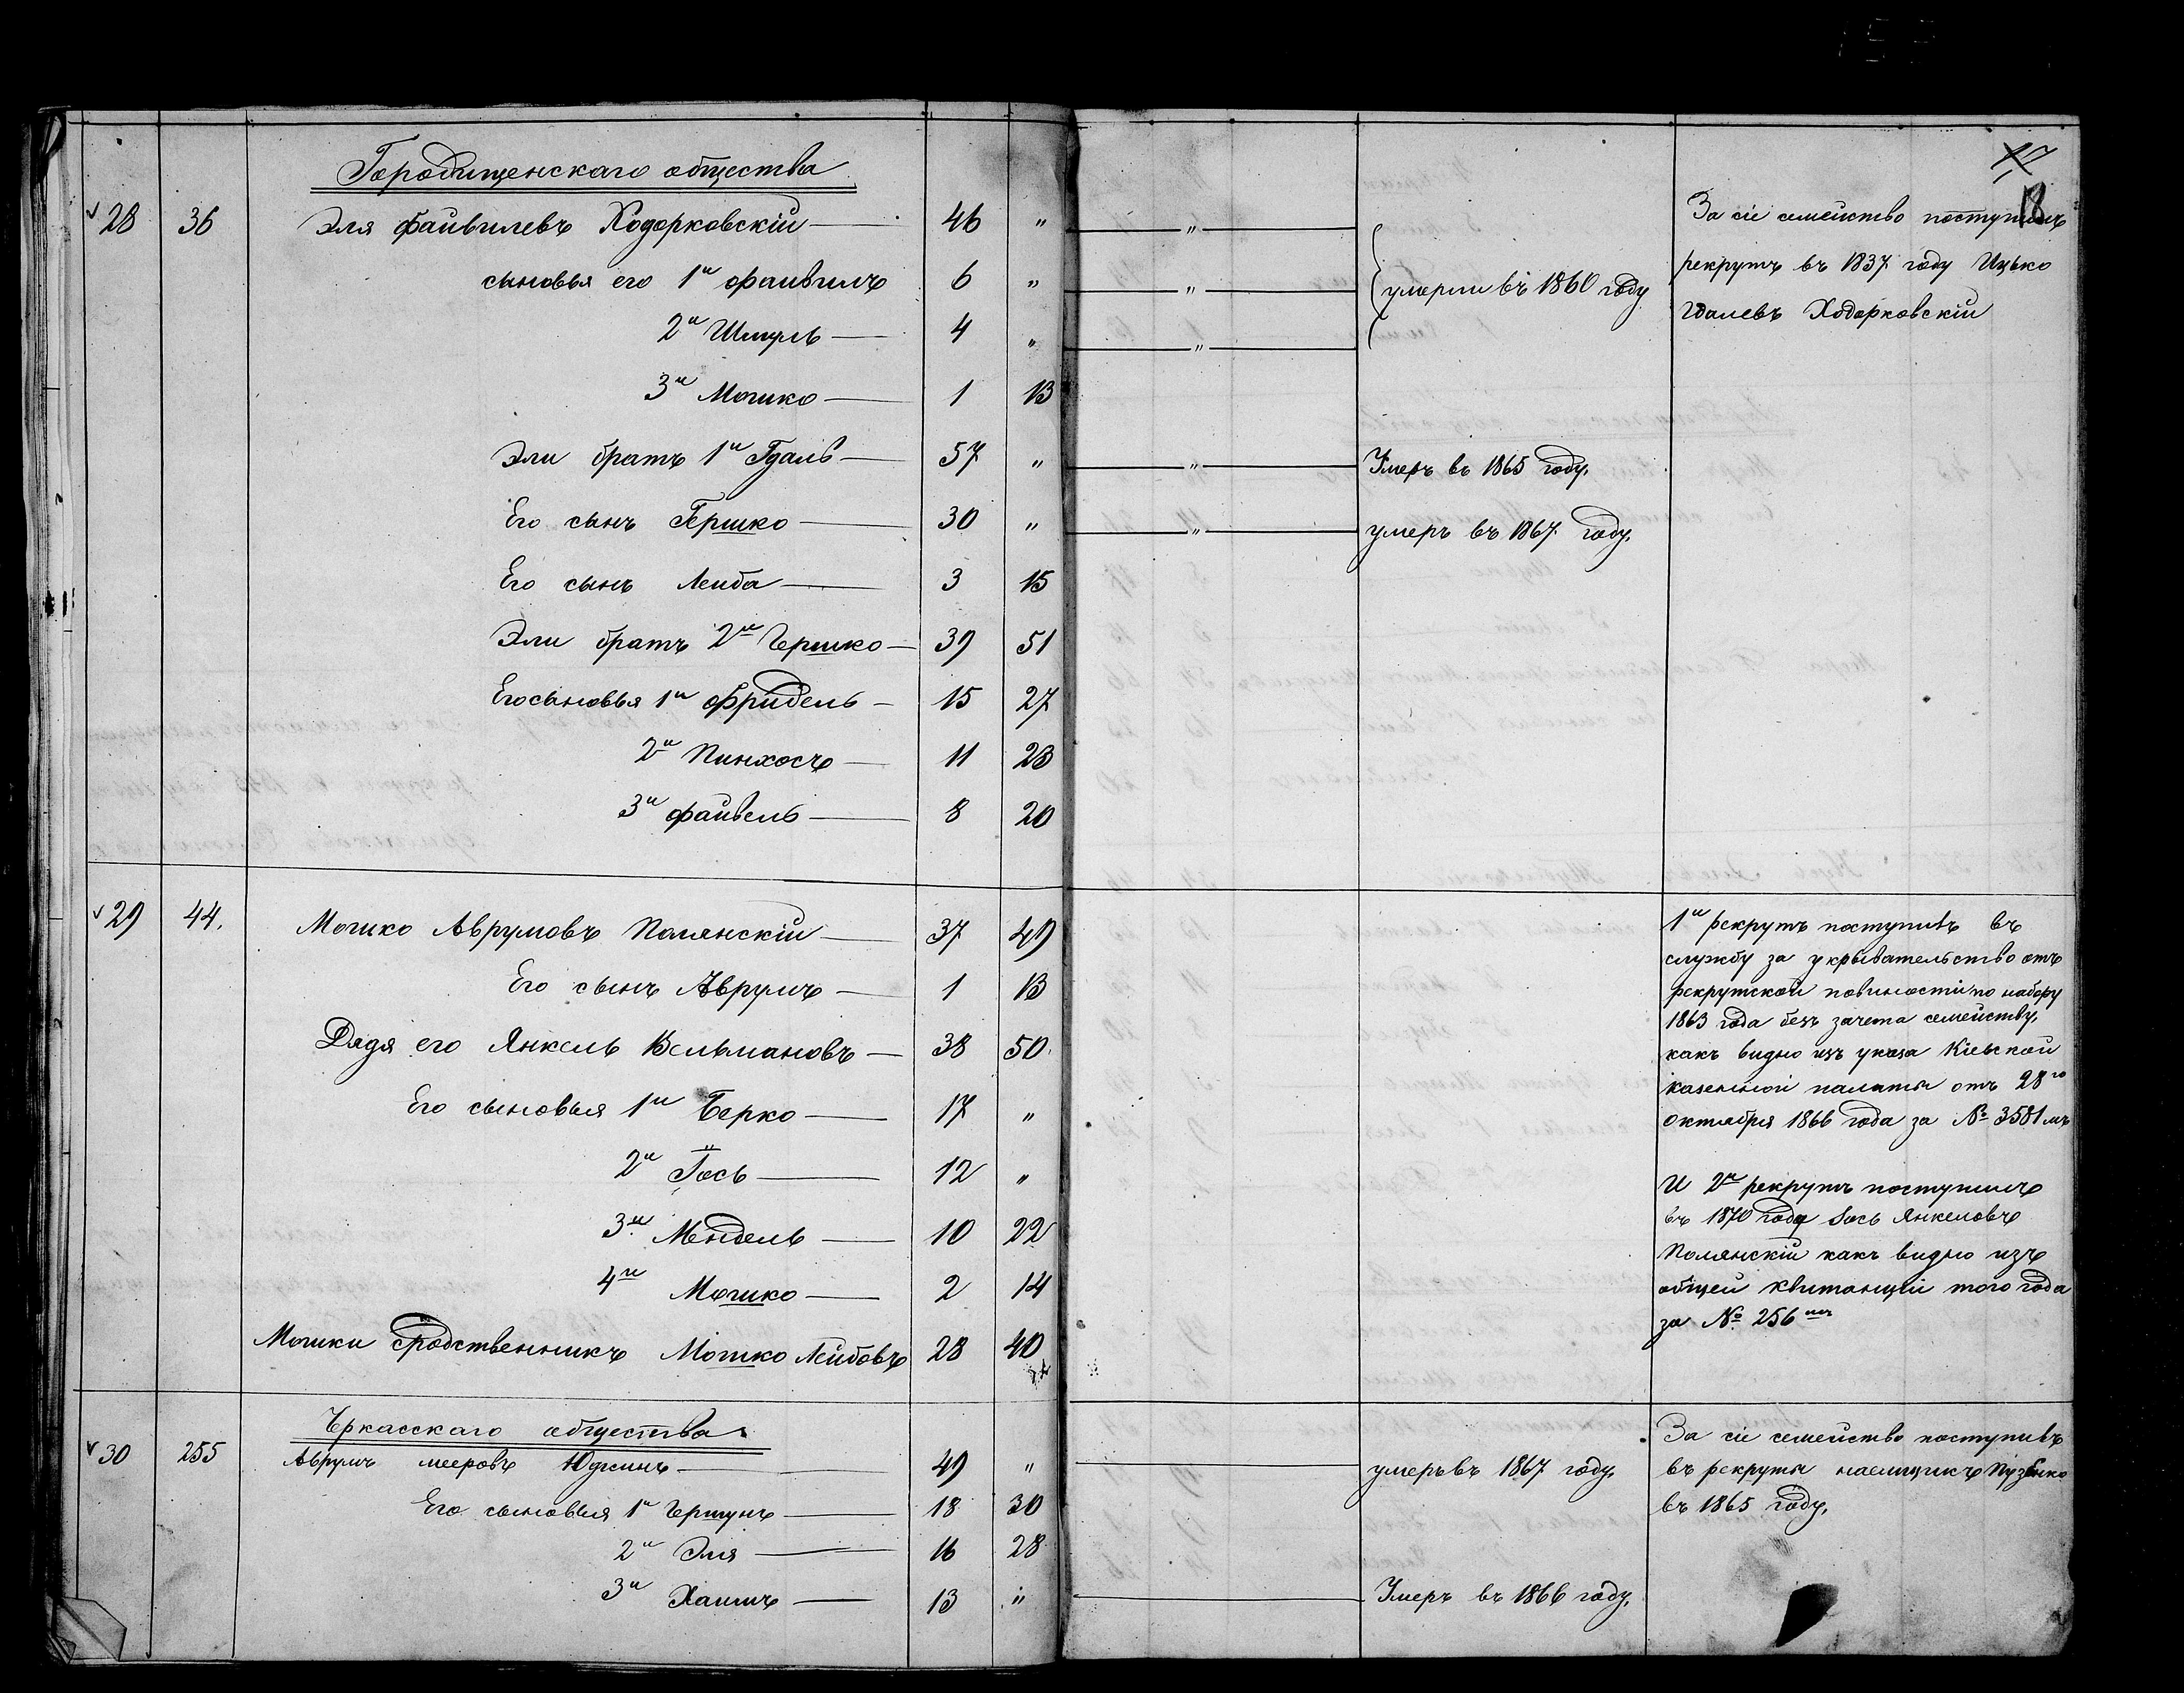 17
18
Городищенскаго общества
28 36 Эля Файвилевъ Ходорковскій 46 " " За сіе семейство поступилъ
сыновья его 1й Файвилъ 6 " " умерли въ 1860 году рекрутъ въ 1837 году Ицько
2й Шмуль 4 " " Гдалевъ Ходорковскій
3й Мошко 1 13
Эли братъ 1й Гдаль 57 " " Умеръ въ 1865 году.
Его сынъ Гершко 30 " " умеръ въ 1867 году.
Его сынъ Лейба 3 15
Эли братъ 2й Гершко 39 51
Его сыновья 1й Фридель 15 27
2й Пинхосъ 11 23
3й Файвель 8 20
29 44. Мошко Аврумовъ Полянскій 37 49
Его сынъ Аврумъ 1 13
Дядя его Янкель Вельмановъ 38 50
Его сыновья 1й Берко 17 "
2й Іось 12 "
3й Мендель 10 22
4й Мошко 2 14
Мошки сродственникъ Мошко Лейбовъ 28 40
1й рекрутъ поступивъ въ
службу за укрывательство отъ
рекрутской повиности по набору
1863 года безъ зачета семейству,
какъ видно изъ указа Кіевской
казенной палаты отъ 28го
октября 1866 года за № 3581мъ
И 2й рекрутъ поступилъ
въ 1870 году Іось Янкеловъ
Полянскій какъ видно изъ
общей квитанціи того года
за № 256мъ
Чркасскаго общества
30 255 Аврумъ Мееровъ Юдкинъ 49 " умеръ въ 1867 году.
Его сыновья 1й Гершунъ 18 30
2й Эля 16 28
3й Хаимъ 13 " Умеръ въ 1866 году.
За сіе семейство поступивъ
въ рекруты наемщикъ
въ 1865 году.